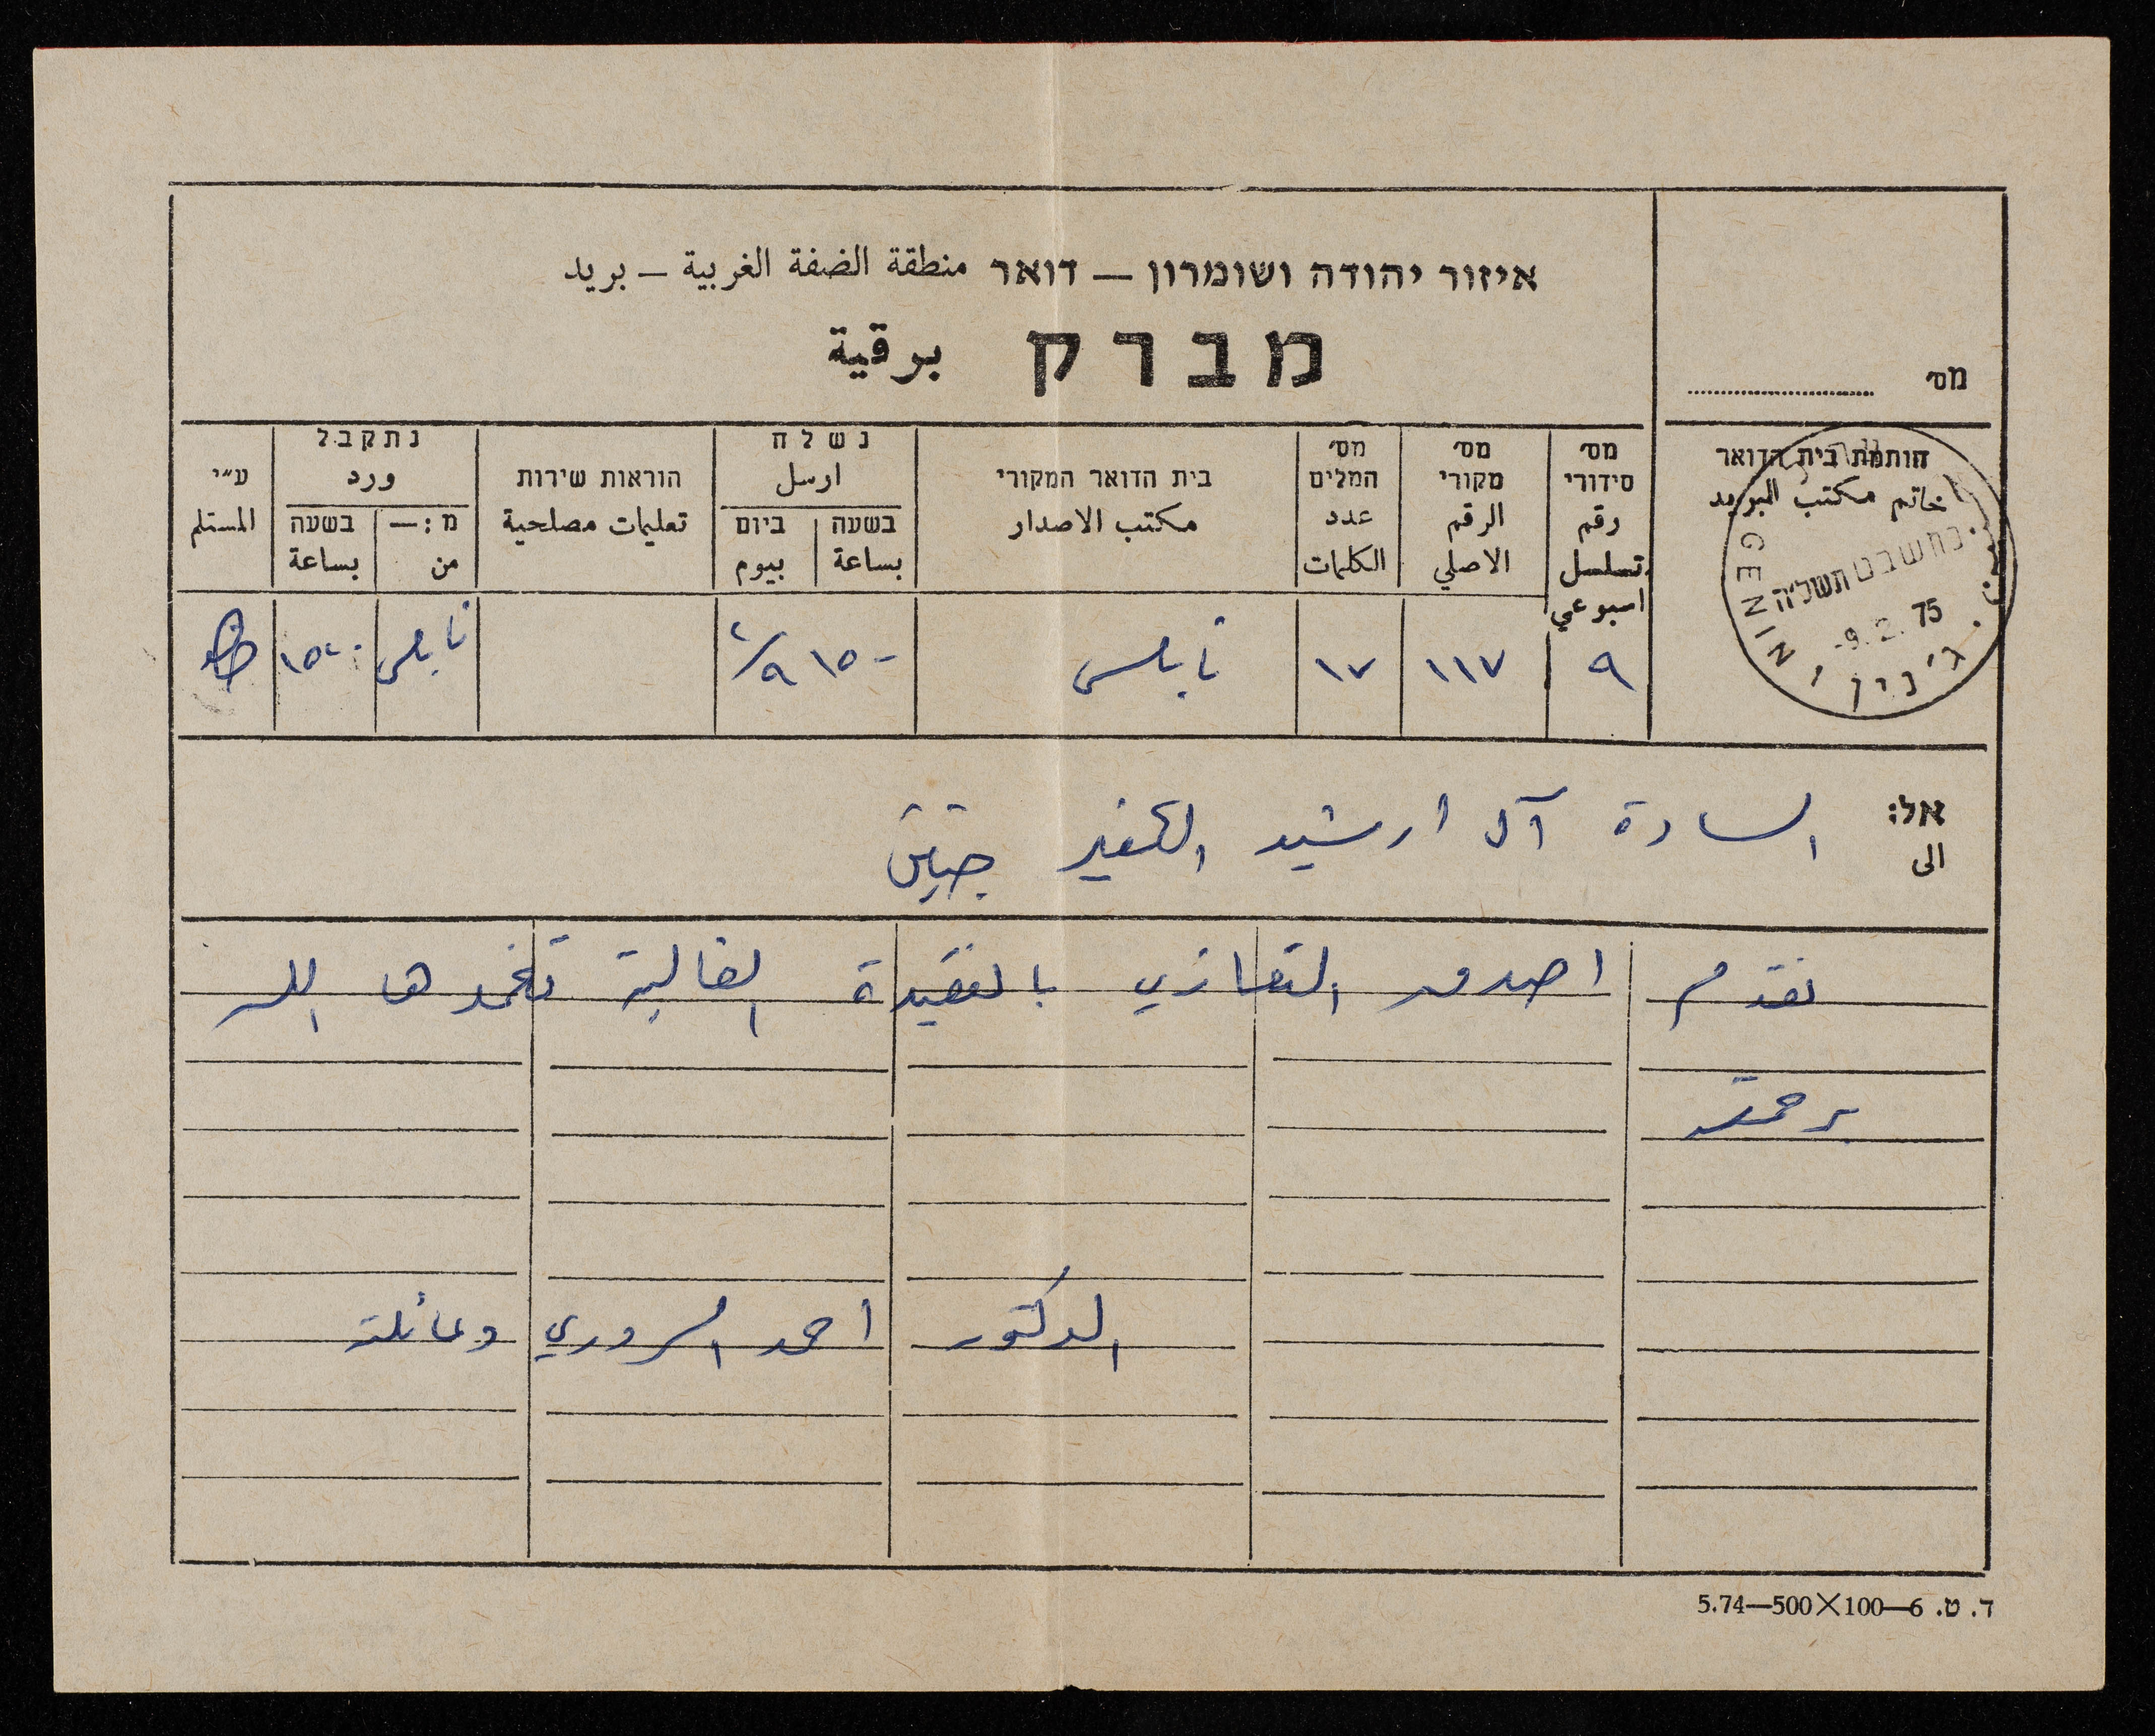 איזור יהודה ושומרון – דואר منطقة الضفة الغربية – بريد
מברק برقية
מס׳
חותמת בית הדואר
خاتم مكتب البريد
GENIN ג׳נין
כח שבט תשל״ה
-9.2.75
מס׳ סידורי رقم تسلسل اسبوعي
מס׳ מקורי الرقم الاصلي
מס׳ המלים عدد الكلمات
בית הדואר המקורי مكتب الاصدار
נשלח ارسل
בשעה بساعة
ביום بيوم
הוראות שירות تعليمات مصلحية
נתקבל ورد
מ:— من
בשעה بساعة
ע״י المستلم
٩ ١١٧ ١٧ نابلس ١٥٠٠ ٩/٢ نابلس
אל: الى
السادة آل ارشيد الكفير جنين
نقدم اصدق التعازي بالفقيدة الغالية تغمدها الله
برحمته
الدكتور احمد السروري وعائلته
ד. ט. 6—100×500—5.74